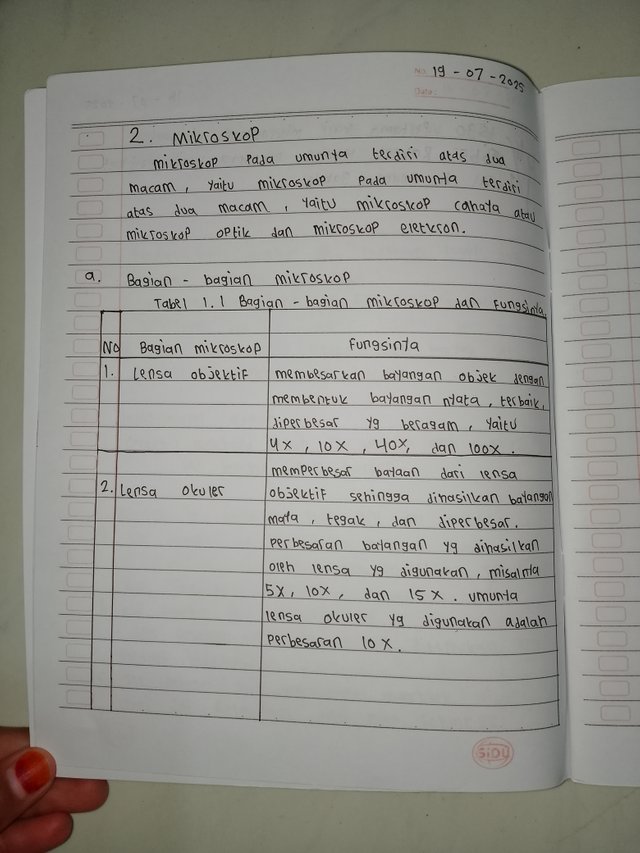 No. 19 - 07 - 2025
Date:
2. Mikroskop
mikroskop pada umunya terdiri atas dua
macam, yaitu mikroskop pada umunya terdiri
atas dua macam, yaitu mikroskop cahaya atau
mikroskop optik dan mikroskop eletkron.
a. Bagian - bagian mikroskop
Tabel 1.1 Bagian - bagian mikroskop dan fungsinya
No Bagian mikroskop fungsinya
1. Lensa objektif membesarkan bayangan objek dengan
membentuk bayangan nyata, terbaik,
diperbesar yg beragam, yaitu
4x, 10x, 40x, dan 100x.
memperbesar bayaan dari lensa
2. Lensa okuler objektif sehingga dihasilkan bayangan
mata, tegak, dan diperbesar.
perbesaran bayangan yg dihasilkan
oleh lensa yg digunakan, misalnya
5x, 10x, dan 15x. umunya
lensa okuler yg digunakan adalah
perbesaran 10x.
SIDU